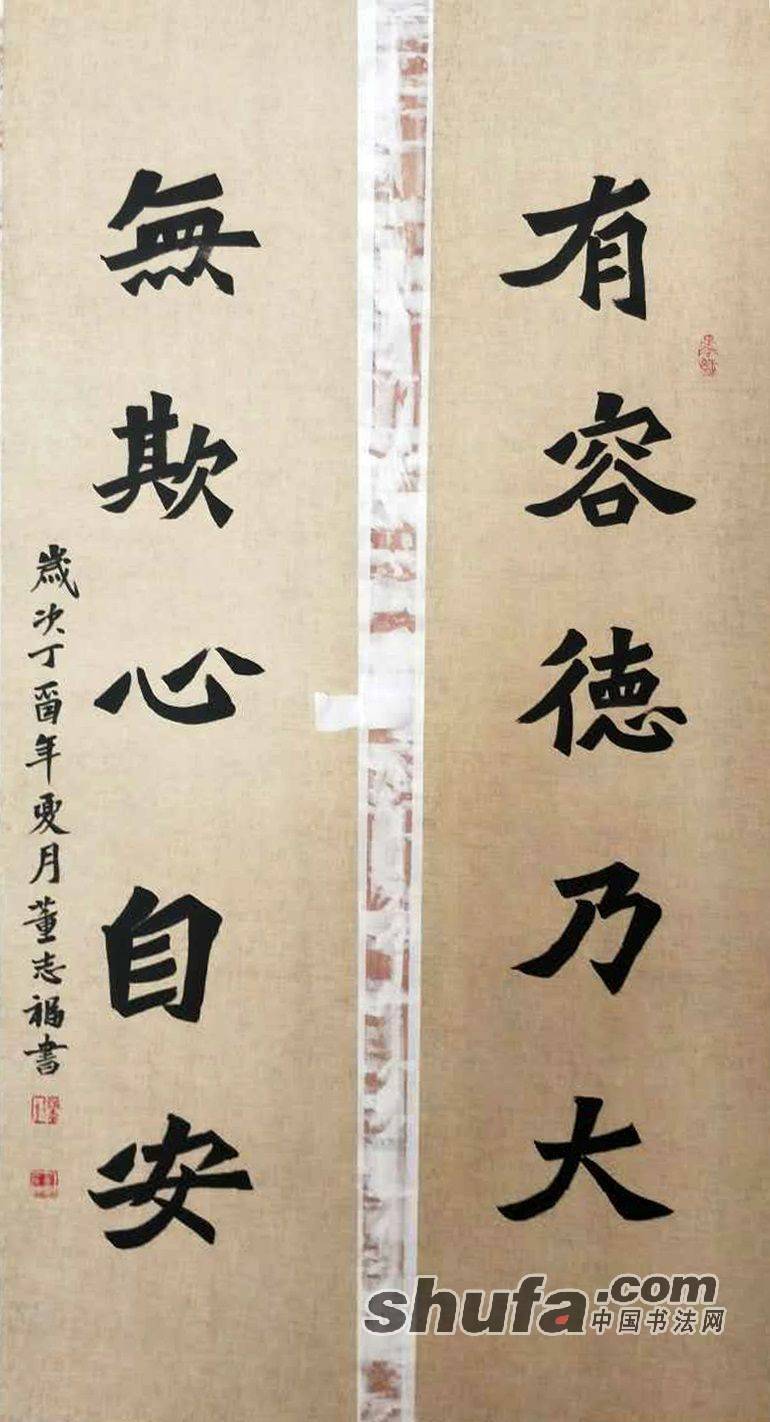 有容德乃大
無欺心自安
歲次丁酉年夏月董志福書
shufa.com
中国书法网